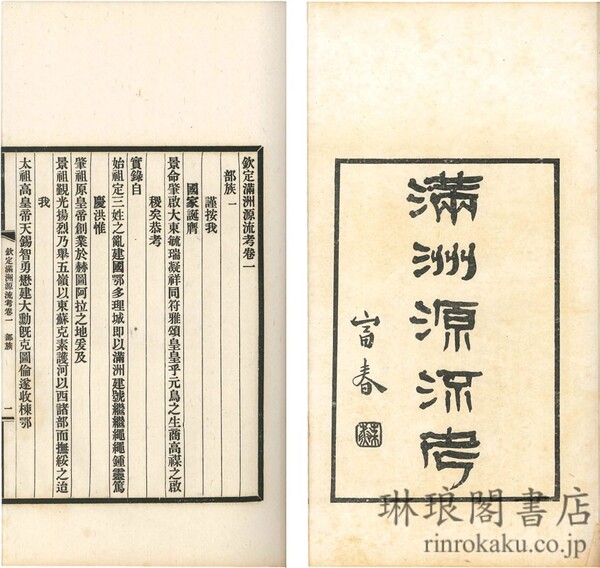 滿洲源流考
富春
欽定滿洲源流考卷一
部族一
謹按我
國家誕膺
景命肇啟大東毓瑞凝祥同符雅頌皇皇乎元鳥之生商高禖之啟
稷矣恭考
實錄自
始祖定三姓之亂建國鄂多理城即以滿洲建號繼繼繩繩鍾靈篤
慶洪惟
肇祖原皇帝創業於赫圖阿拉之地爰及
景祖觀光揚烈乃舉五嶺以東蘇克素護河以西諸部而撫綏之迨
我
太祖高皇帝天錫智勇懋建大勳既克圖倫遂收棟鄂
欽定滿洲源流考卷一 部族 一
琳琅閣書店
rinrokaku.co.jp